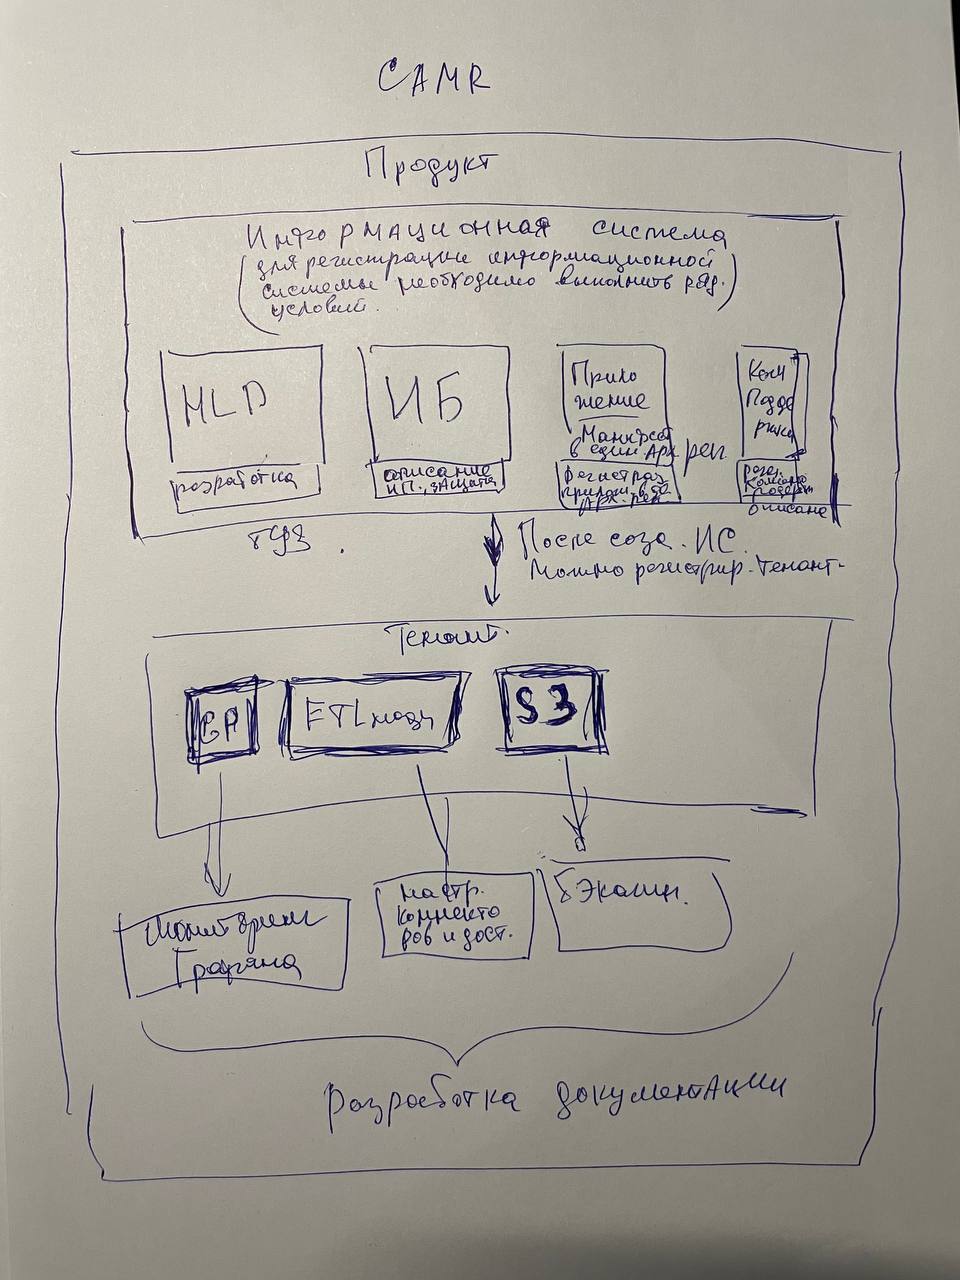 CAMR
Продукт
Информационная система
(для регистрации информационной
системы необходимо выполнить ряд.)
условий.
HLD
разработка
ИБ
описание
ИП., защита
Прило
жение
Манифест
в един Арх. реп
Регистрац
прилож. в
Арх. реп.
Ком
Подде
ржки
описание
После созд. ИС.
Можно регистрир. Тенант.
Тенант.
GP
ETL
S3
Мониторинг
Графана
настр.
коннекто
ров и дост.
бэкапи.
разработка документации